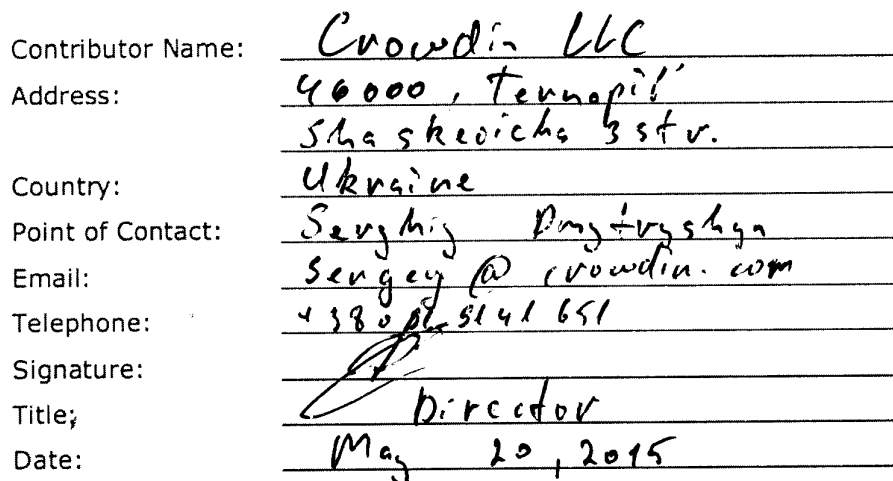 Contributor Name: Crowdin LLC
Address: 46000, Ternopil'
Shaskevicha 3 str.
Country: Ukraine
Point of Contact: Serghiy Dmytryshyn
Email: sergey@crowdin.com
Telephone:
Signature:
Title: Director
Date: May 20, 2015